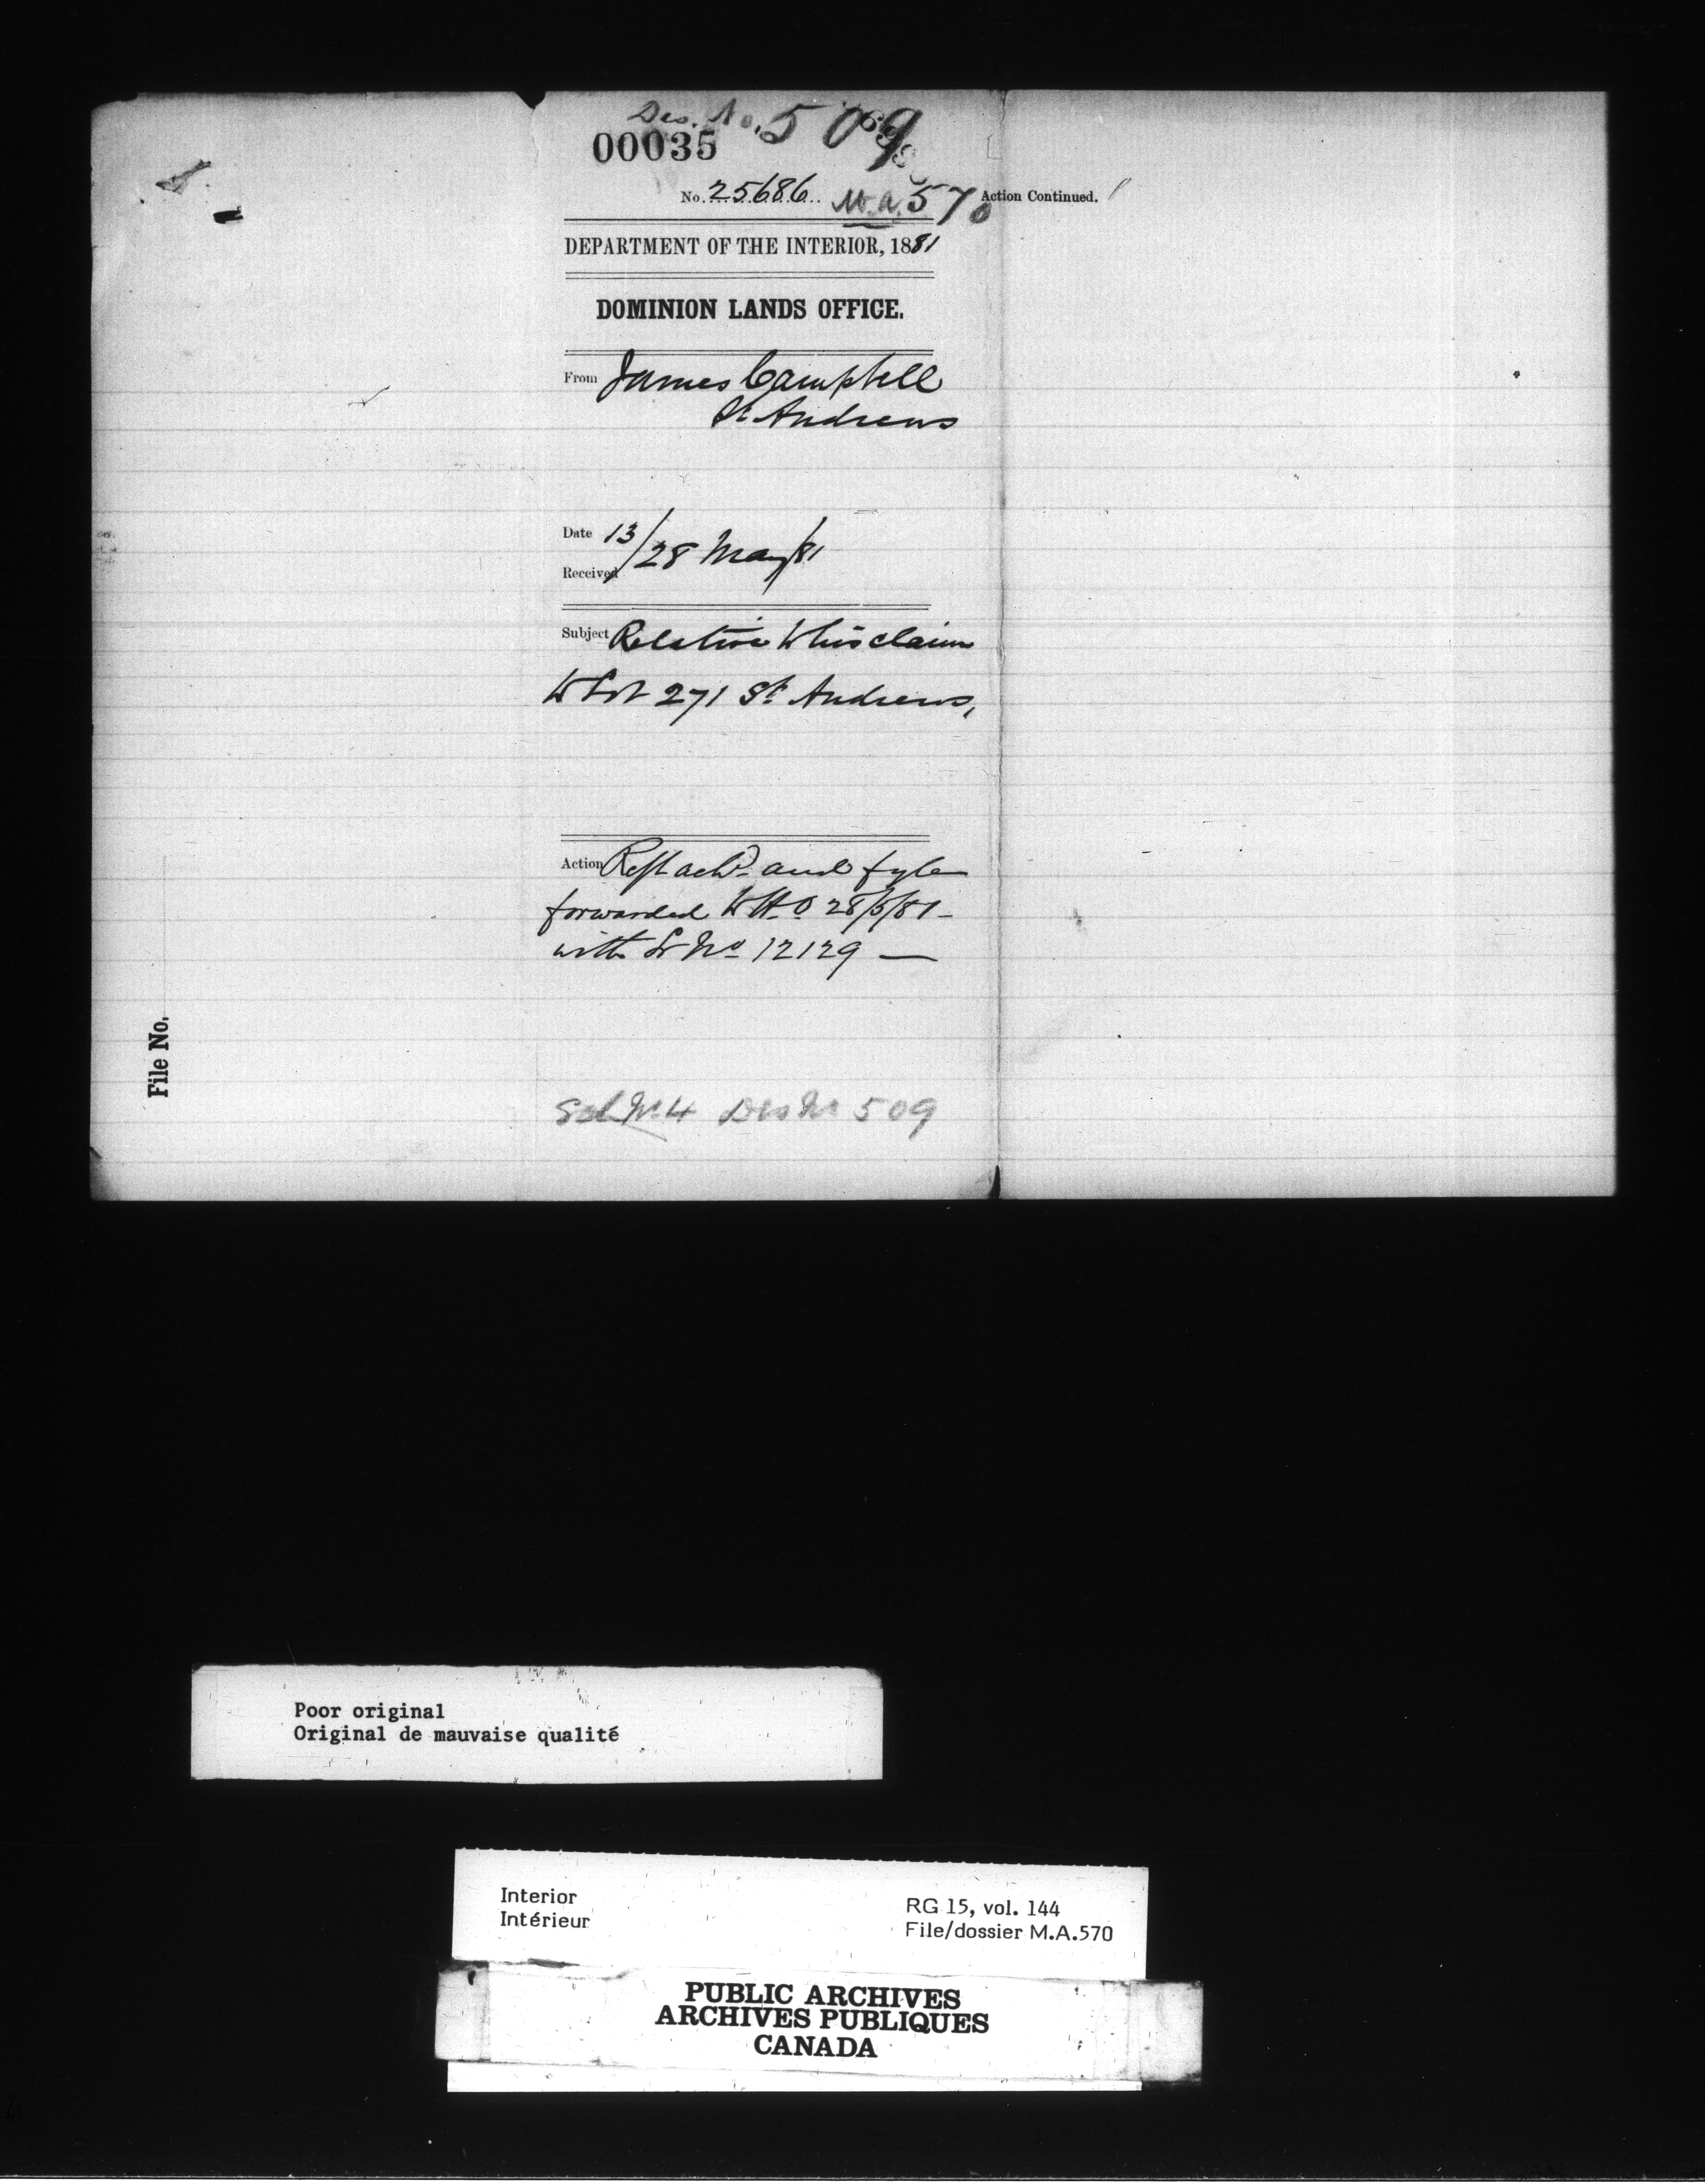 Des. No. 509
00035
No. 25686 M.A. 570
Action Continued.
DEPARTMENT OF THE INTERIOR, 1881
DOMINION LANDS OFFICE.
From James Campbell
St Andrews
Date 13/
Received 28 May/81
Subject Relative to his claim
to Lot 271 St Andrews,
Action and fyle
forwarded to H.O 28/5/81
with Lr No 12129
File No.
Sch No 4 Des No 509
Poor original
Original de mauvaise qualité
Interior
Intérieur
RG 15, vol. 144
File/dossier M.A.570
PUBLIC ARCHIVES
ARCHIVES PUBLIQUES
CANADA